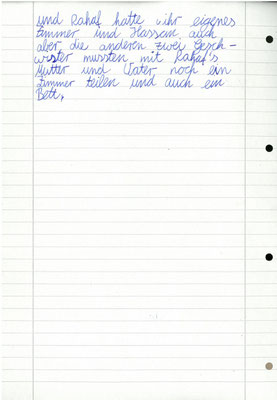 und Rahaf hatte ihr eigenes
Zimmer und Hassan auch
aber die anderen zwei Gesch-
wister mussten mit Rahaf's
Mutter und Vater noch ein
Zimmer teilen und auch ein
Bett.